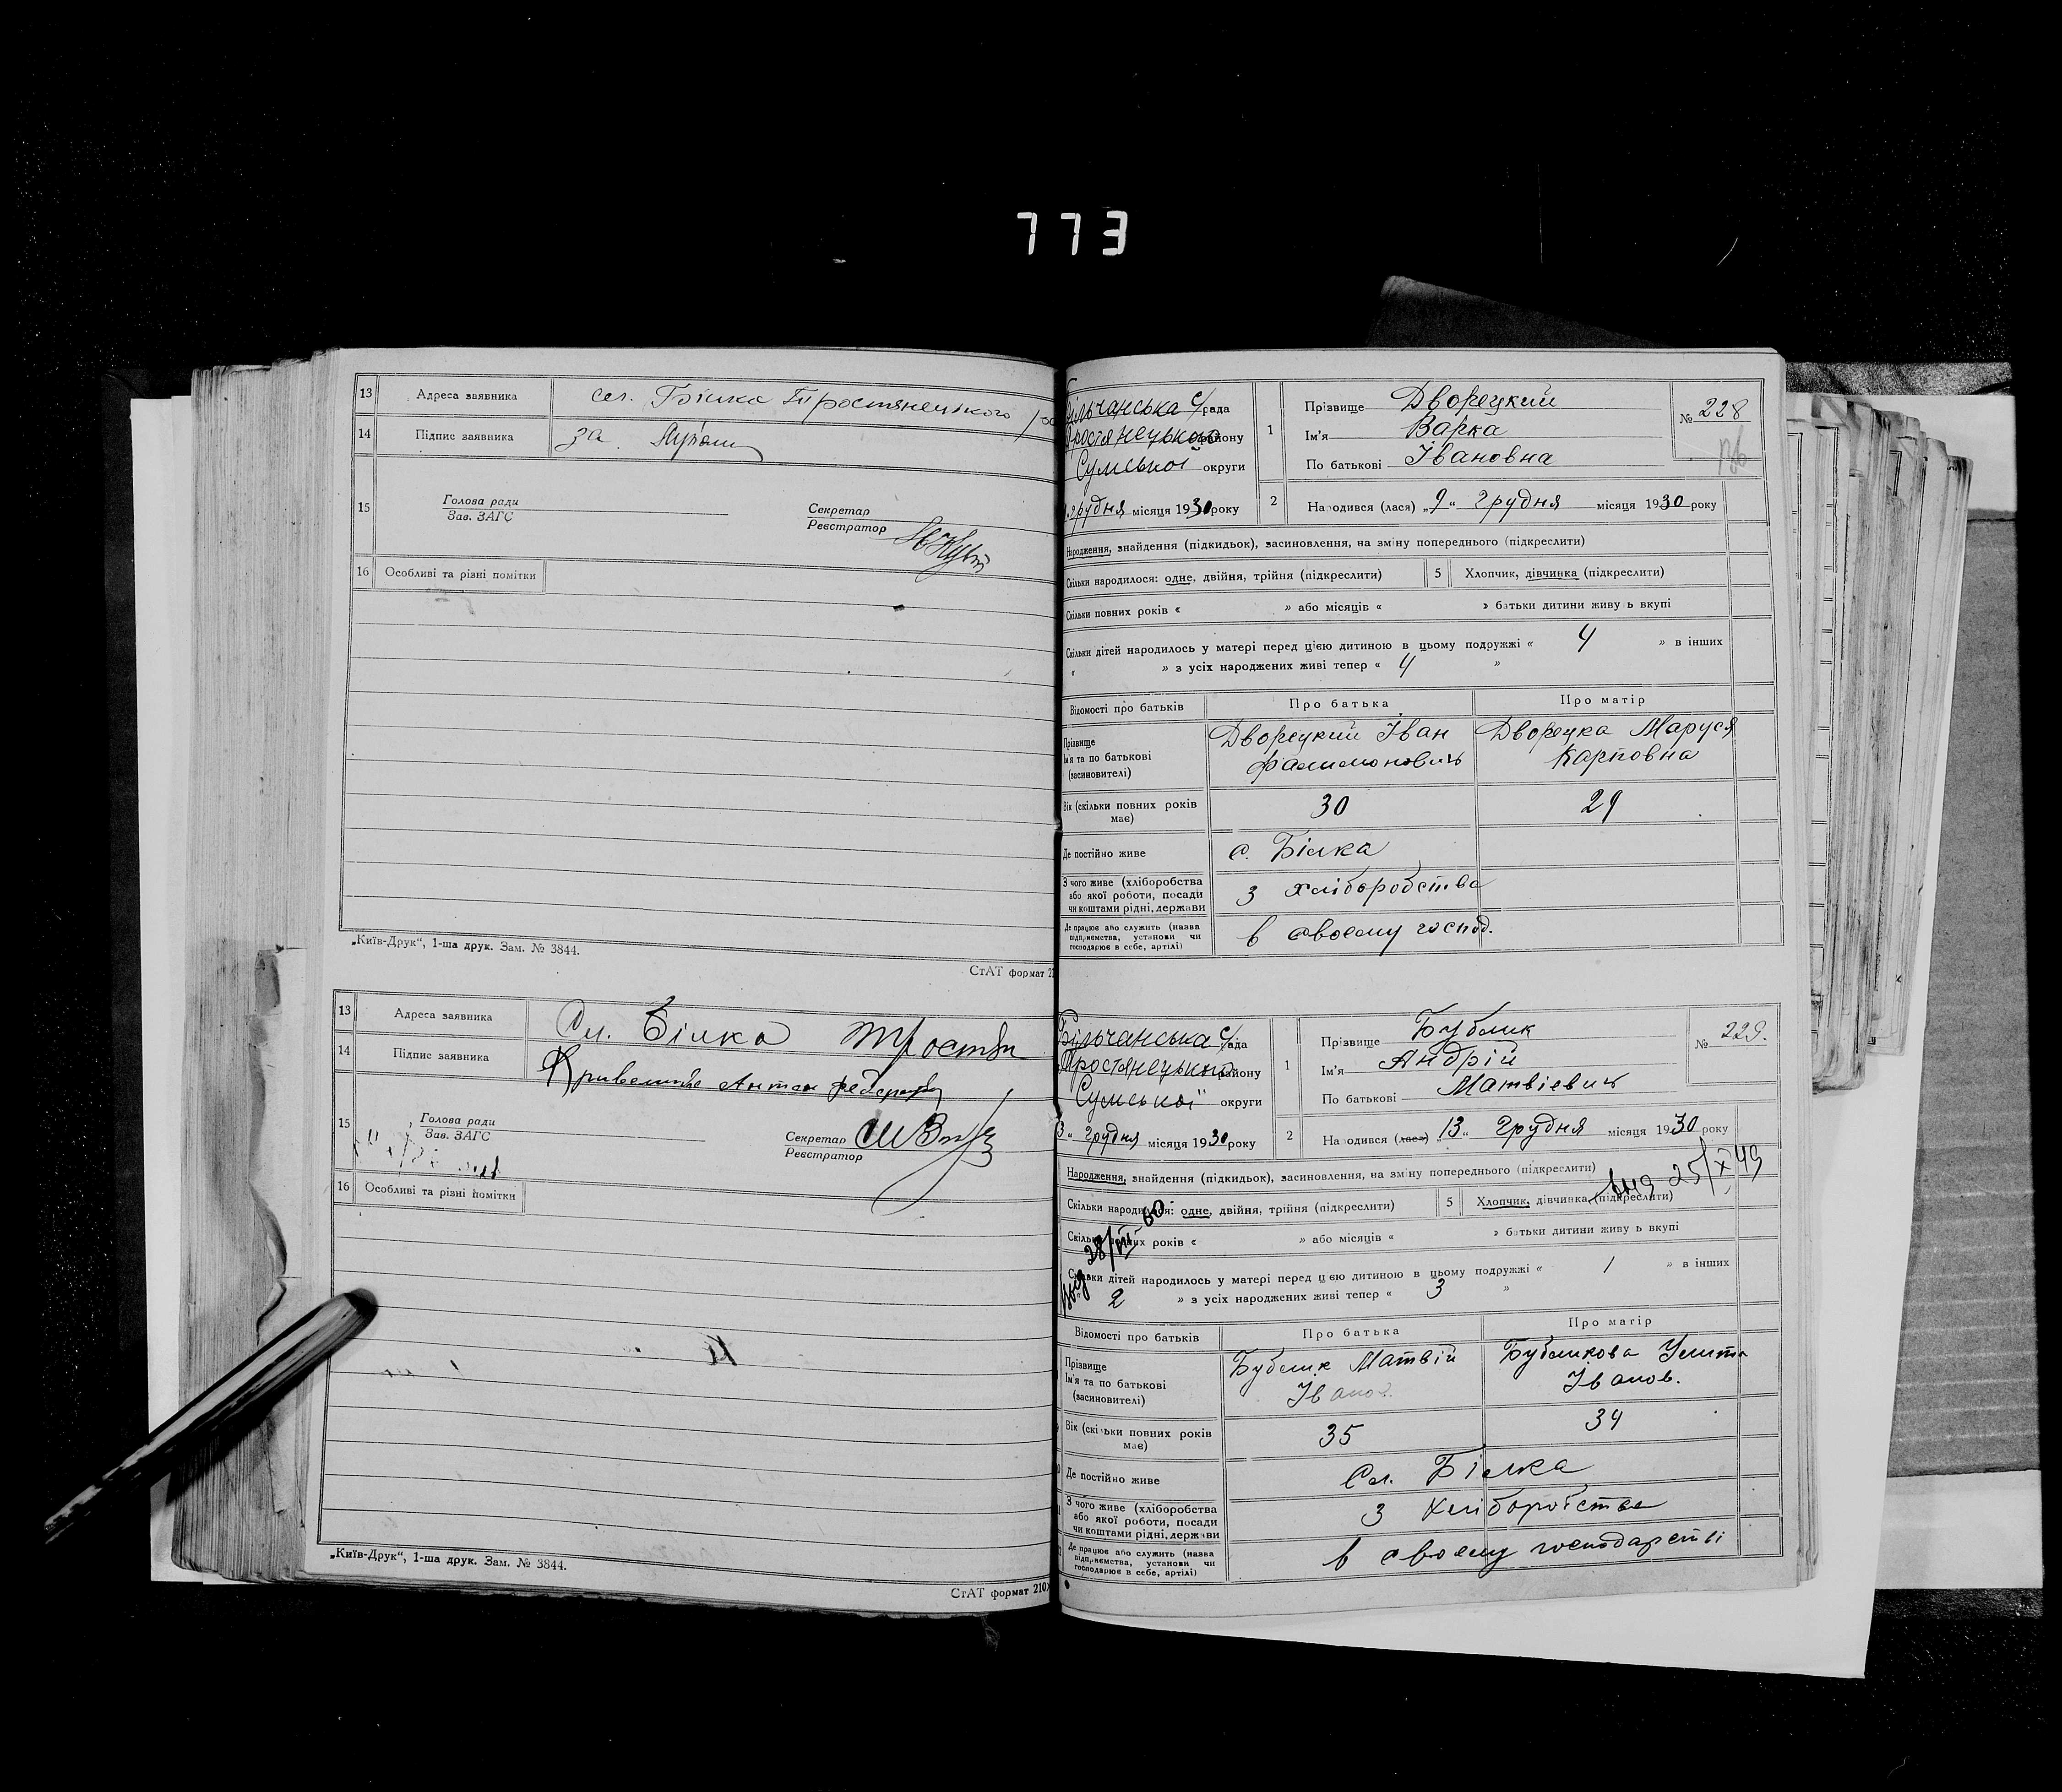 773
13 Адреса заявника сел. Білка Тростянецького
14 Підпис заявника за
15 Голова ради
Зав. ЗАГС
Секретар
Реєстратор
16 Особливі та різні помітки
„Київ-Друк“, 1-ша друк. Зам. № 3844.
СтАТ формат 21
13 Адреса заявника Сл. Білка Тростян
14 Підпис заявника Антон
15 Голова ради
Зав. ЗАГС
Секретар
Реєстратор
16 Особливі та різні помітки
„Київ-Друк“, 1-ша друк. Зам. № 3844.
СтАТ формат 210
ільчанська с/рада
Тростянецького району
Сумської округи
грудня місяця 1930 року
1 Прізвище Дворецкий
Ім'я Варка
По батькові Івановна
№ 228
2 Народився (лася) „9“ грудня місяця 1930 року
Народження, знайдення (підкидьок), засиновлення, на зміну попереднього (підкреслити)
Скільки народилося: одне, двійня, трійня (підкреслити) 5 Хлопчик, дівчинка (підкреслити)
Скільки повних років « » або місяців « » батьки дитини живуь вкупі
Скільки дітей народилось у матері перед цією дитиною в цьому подружжі « 4 » в інших
« » з усіх народжених живі тепер « 4 »
Відомості про батьків Про батька Про матір
Прізвище
Ім'я та по батькові
(засиновителі)
Дворецкий Іван
Дворецка Маруся
Карповна
Вік (скільки повних років має) 30 29
Де постійно живе с. Білка
З чого живе (хліборобства
або якої роботи, посади
чи коштами рідні, держави
з хліборобства
Де працює або служить (назва
підприємства, установи чи
господарює в себе, артілі)
в своєму господ.
Більчанська с/рада
Тростянецького району
Сумської округи
3“ грудня місяця 1930 року
1 Прізвище Бублик
Ім'я Андрій
По батькові Матвієвич
№ 229.
2 Народився (лася) „13“ грудня місяця 1930 року
Народження, знайдення (підкидьок), засиновлення, на зміну попереднього (підкреслити)
25/X 49
Скільки народилося: одне, двійня, трійня (підкреслити) 5 Хлопчик, дівчинка (підкреслити)
Скільки повних років « » або місяців « » батьки дитини живуь вкупі
Скільки дітей народилось у матері перед цією дитиною в цьому подружжі « 1 » в інших
« 2 » з усіх народжених живі тепер « 3 »
Відомості про батьків Про батька Про матір
Прізвище
Ім'я та по батькові
(засиновителі)
Бублик Матвій
Іванов.
Бубликова Улита
Іванов.
Вік (скільки повних років має) 35 34
Де постійно живе Сл. Білка
З чого живе (хліборобства
або якої роботи, посади
чи коштами рідні, держави
З хліборобства
Де працює або служить (назва
підприємства, установи чи
господарює в себе, артілі)
в своєму господарстві